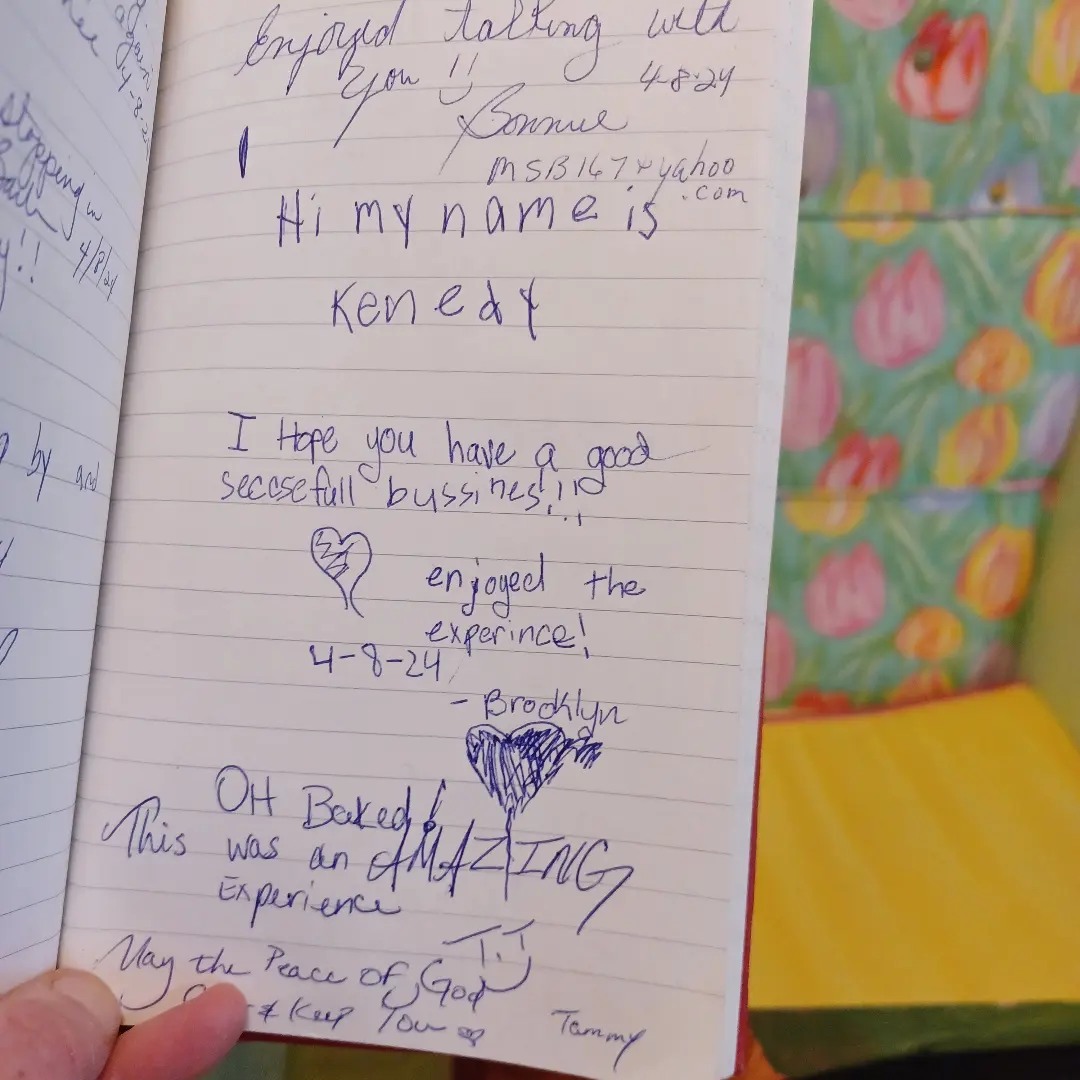 again
4-8-2
stopping in
4/8/24
y!!
by and
Enjoyed talking with
you !!
4-8-24
Bonnie
MSB147 yahoo
.com
Hi my name is
Kenedy
I Hope you have a good
seccsefull bussines!!!
enjoyed the
experince!
4-8-24
- Brooklyn
OH Baked!
This was an AMAZING
Experience
May the Peace of God
& Keep You
Tammy